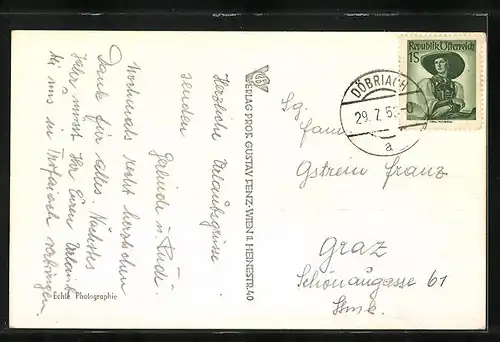 Herzliche Urlaubsgrüsse
senden
Gelinde u. Rudi.
Nochmals recht herzlichen
Dank für alles. Nächstes
Jahr müsst Ihr Euren Urlaub
bei uns in Trofaiach verbringen.
Echte Photographie
VERLAG PROF. GUSTAV FENZ-WIEN II. HEINESTR. 40
Republik Österreich
1S
DÖBRIACH
29. 7. 5
a
Sg.
Fam.
Gstrein Franz
Graz
Schönaugasse 61
Stmk.